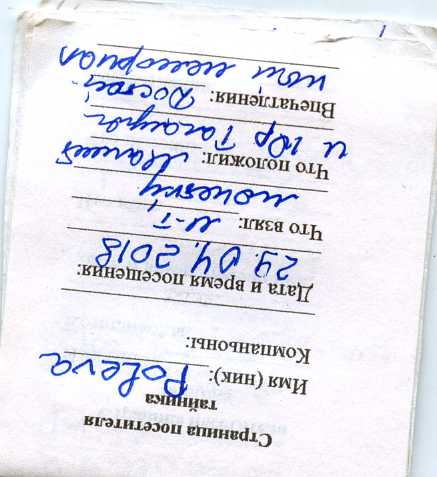 Страница посетителя
тайника
Имя (ник): Poleva
Компаньоны:
Дата и время посещения:
29.04.2018
Что взял: м-т,
монетку
Что положил: Магнит
и
Впечатления: Достой-
ный мемориал